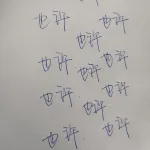 也许 也许
也许
也许 也许
也许
也许 也许
也许
也许 也许